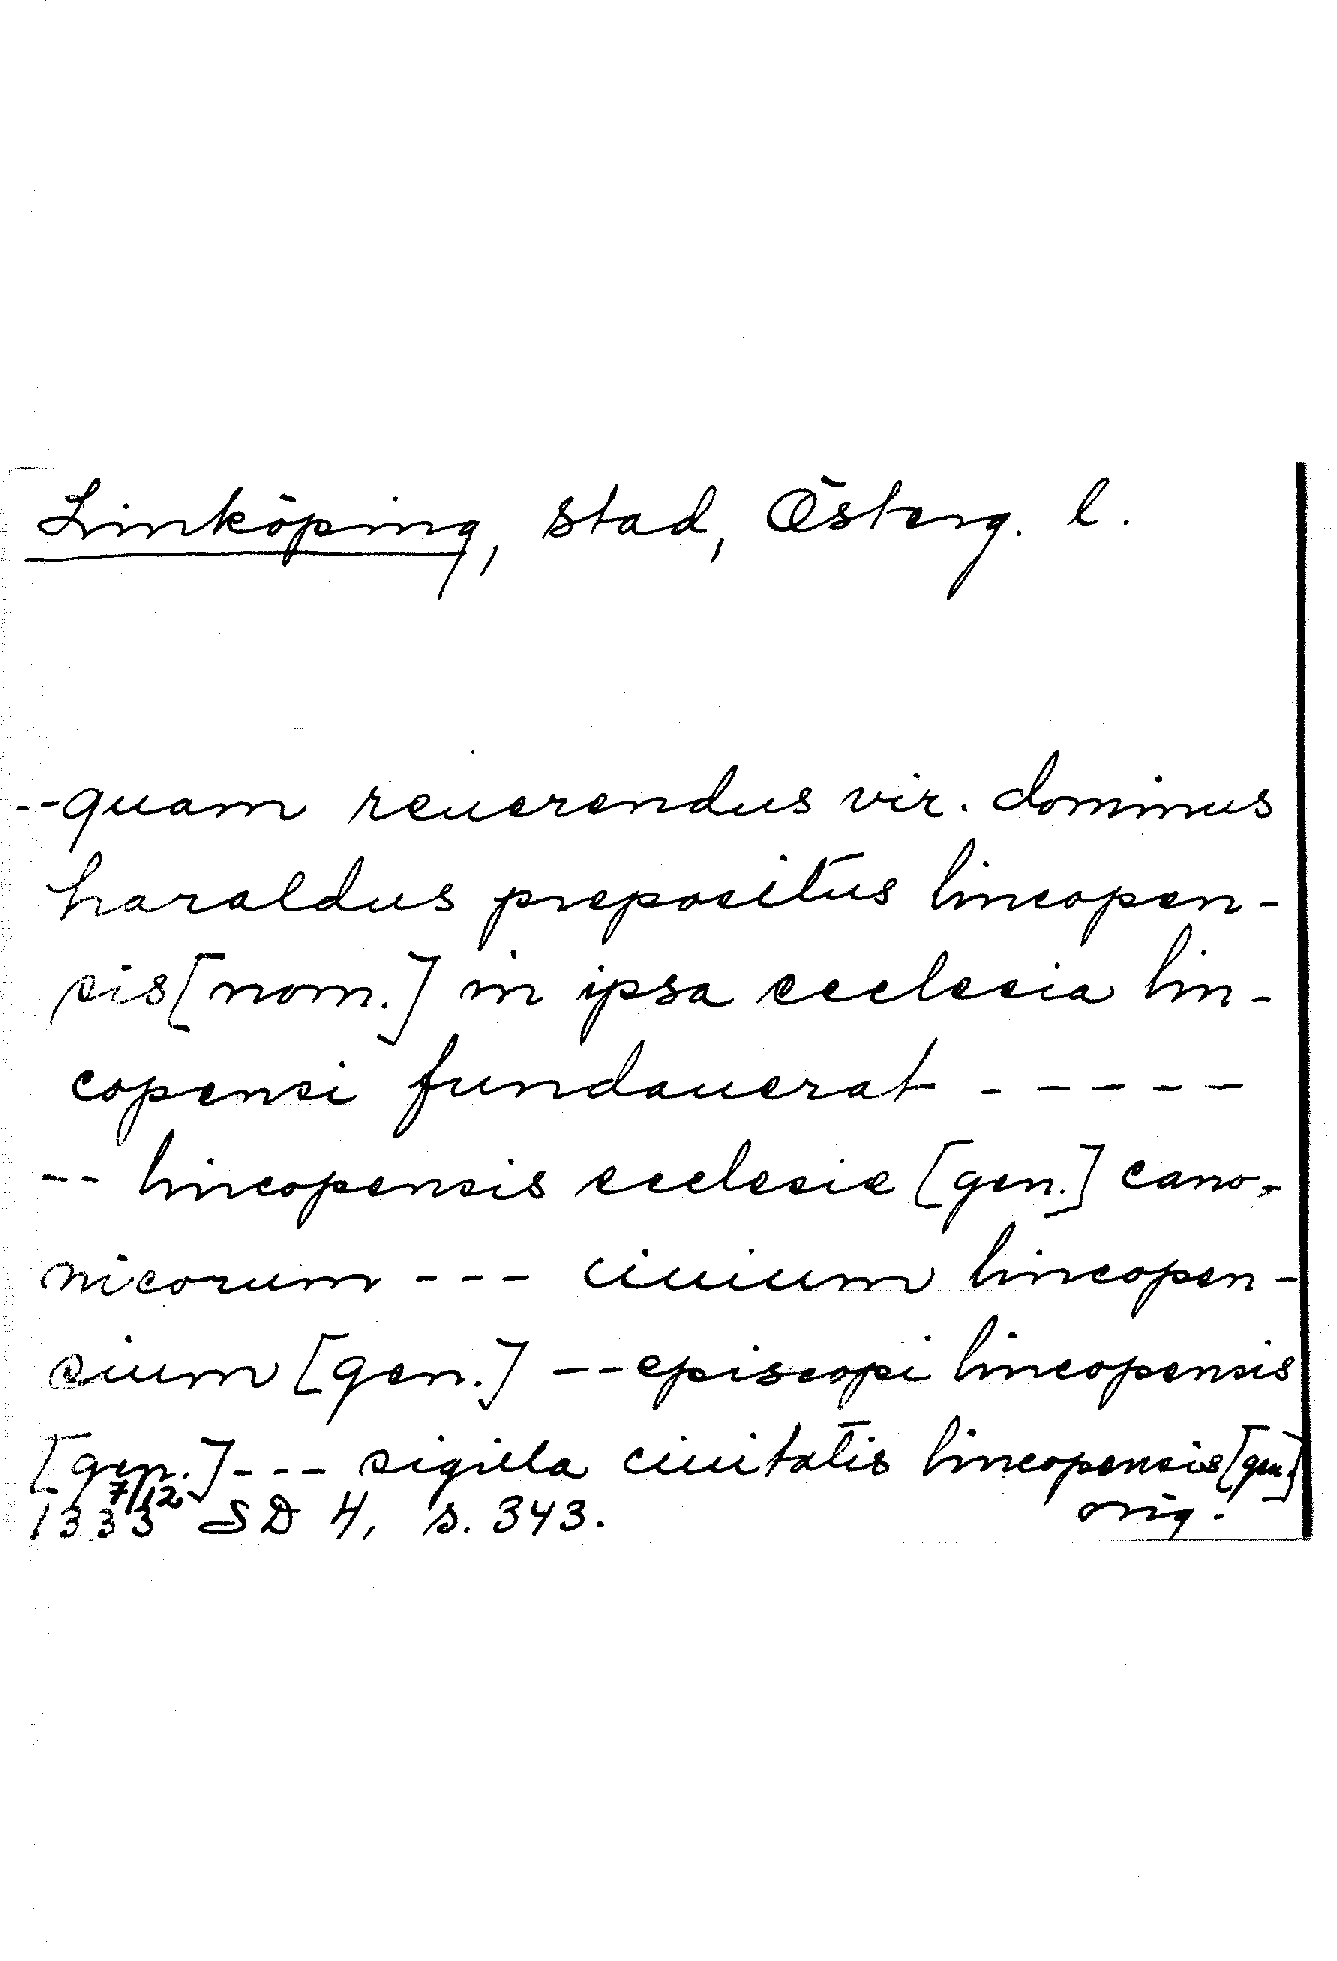 Linköping, stad, Österg. l.
--quam reuerendus vir. dominus
haraldus prepositus lincopen-
sis [nom.] in ipsa ecclesia lin-
copensi fundauerat - - - - -
-- lincopensis ecclesie [gen.] cano-
nicorum --- ciuium lincopen-
sium [gen.] -- episcopi lincopensis
[gen.] --- sigilla ciuitatis lincopensis [gen.]
1333 7/12 SD 4, s. 343. orig.